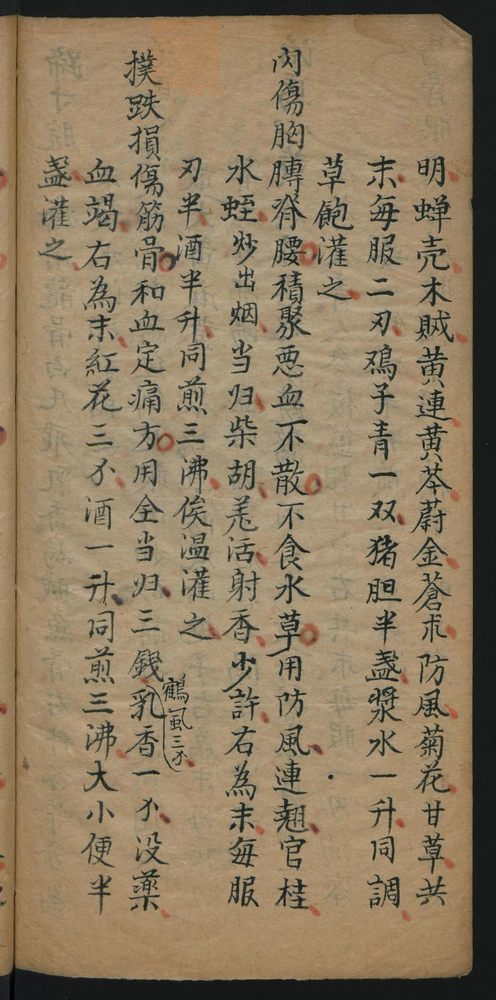 明蝉壳木賊黄連黄芩蔚金蒼朮防風菊花甘草共
末每服二刃鴉子青一双猪胆半盞漿水一升同調
草飽灌之
内傷胸膊脊腰積聚悪血不散不食水草用防風連翹官桂
水蛭炒出烟当归柴胡羌活射香少許右為末每服
刃半酒半升同煎三沸俟温灌之
撲跌損傷筋骨和血定痛方用全当归三錢乳香一分没藥
鶴虱三分
血竭右為末紅花三分酒一升同煎三沸大小便半
盞灌之